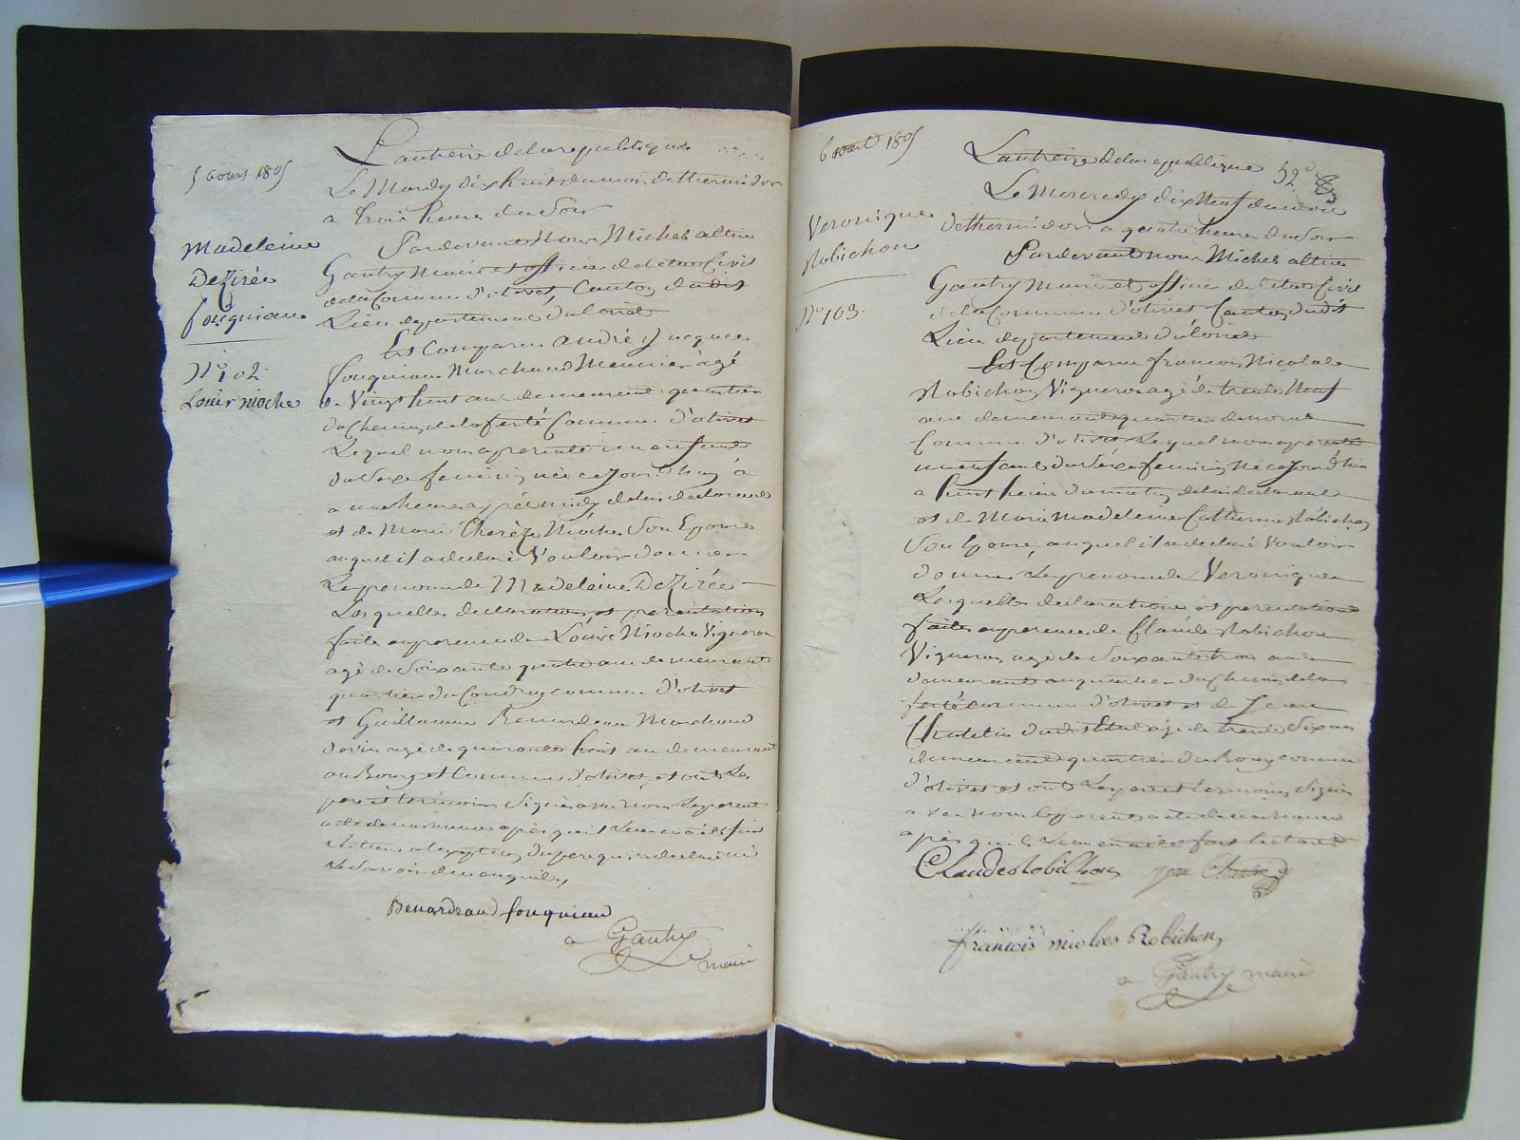 5 aoust 1805
Madeleine
Dezirée
fouquiau
N° 102
Louis mothe
L'an treize de la republique
Le Mardy dix huit du mois de thermidor
a trois heures du Soir
Pardevant Nous Michel altin
Gautry Maire et officier de l'etat Civil
de la Commune d'olivet, Canton dudit
Lieu departement du loiret
Est Comparu andré Jacques
fouquiau Marchand Meunier agé
de Vingt huit ans demeurant quartier
du Chemin de la ferté Commune d'olivet
Lequel nous a presenté un enfant
du Sexe feminin née ce Jourd'huy à
une heure apres midy de lui declarant
et de Marie Therèze Mothe Son Epouse
auquel il a declaré Vouloir donner
Les prenoms de Madeleine Dezirée
Lesquelles declaration et presentation
faite en presence de Louis Mothe Vigneron
agé de Soixante quatre ans demeurant
quartier du Coudray commune d'olivet
et Guillaume Benardeau Marchand
de vin agé de quarante huit ans demeurant
au Bourg et Commune d'olivet, et ont Les
pere et temoins Signés avec nous Le present
acte de naissance après qu'il Leur en a été fait
Lecture
Benardeau fouquiau
a Gautry
maire
6 aoust 1805
Veronique
Robichon
N° 103.
L'an treize de la republique 52e
Le Mercredy dix Neuf du mois
de thermidor a quatre heures du Soir
Pardevant nous Michel altin
Gautry Maire et officier de l'etat Civil
de la Commune d'olivet Canton dudit
Lieu departement du loiret
Est Comparu francois Nicolas
Robichon Vigneron agé de trente Neuf
ans demeurant quartier
Commune d'olivet Lequel nous a presenté
un enfant du Sexe feminin Née ce Jourd'hui
a huit heures du matin de lui declarant
et de Marie Madeleine Catherine Robichon
Son Epouse, auquel il a declaré Vouloir
donner Le prenom de Veronique
Lesquelles declaration et presentation
faites en presence de Claude Robichon
Vigneron agé de Soixante trois ans
demeurant au quartier du Chemin de la
ferté commune d'olivet et de Jean
agé de trente Six ans
demeurant quartier du Bourg commune
d'olivet et ont Les pere et temoins Signés
avec nous le present acte de naissance
après qu'il Leur en a été fait lecture
Claude Robichon
francois nicolas Robichon
a Gautry maire